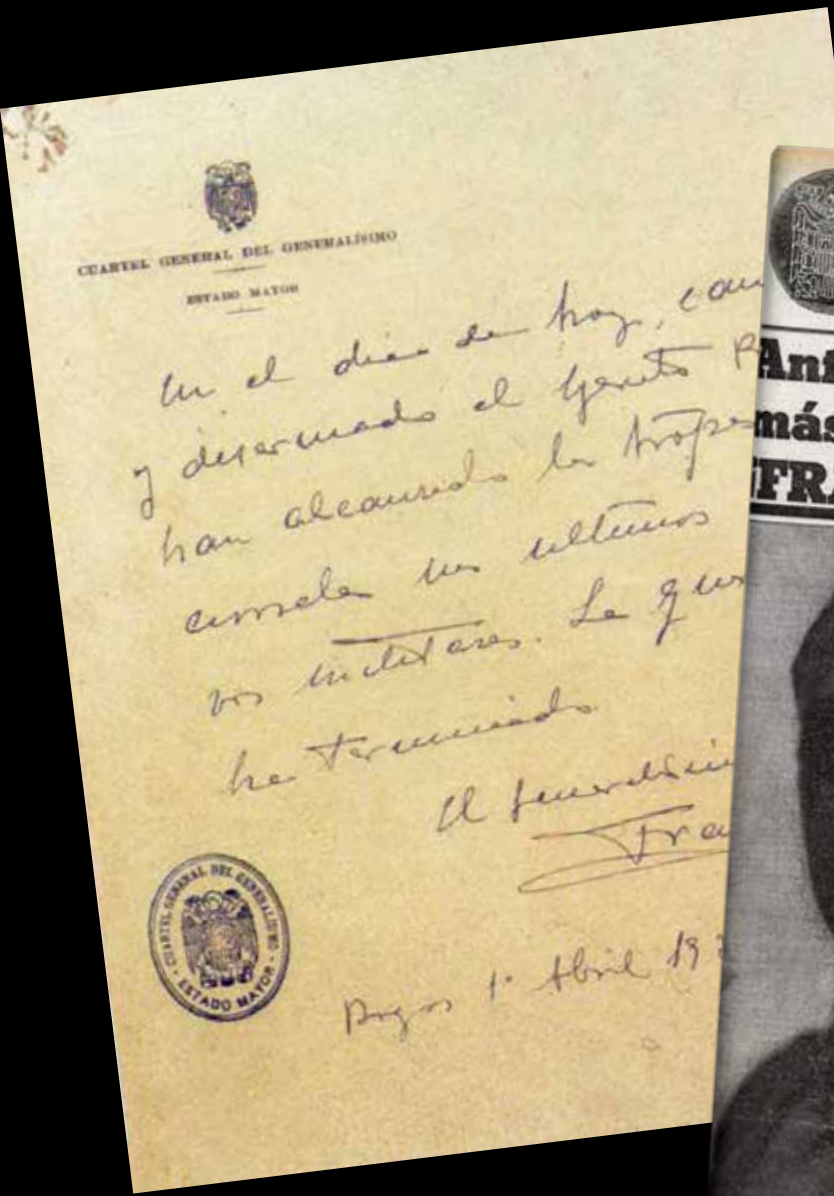 CUARTEL GENERAL DEL GENERALÍSIMO
ESTADO MAYOR
En el dia de hoy, cau
y desarmado el Ejercito R
han alcanzado las tropas
cionales sus ultimos
vos militares. La gue
ha terminado.
El Generalísim
Fra
Burgos 1º Abril 193
CUARTEL GENERAL DEL GENERALÍSIMO
· ESTADO MAYOR ·
Ani
más
FRA